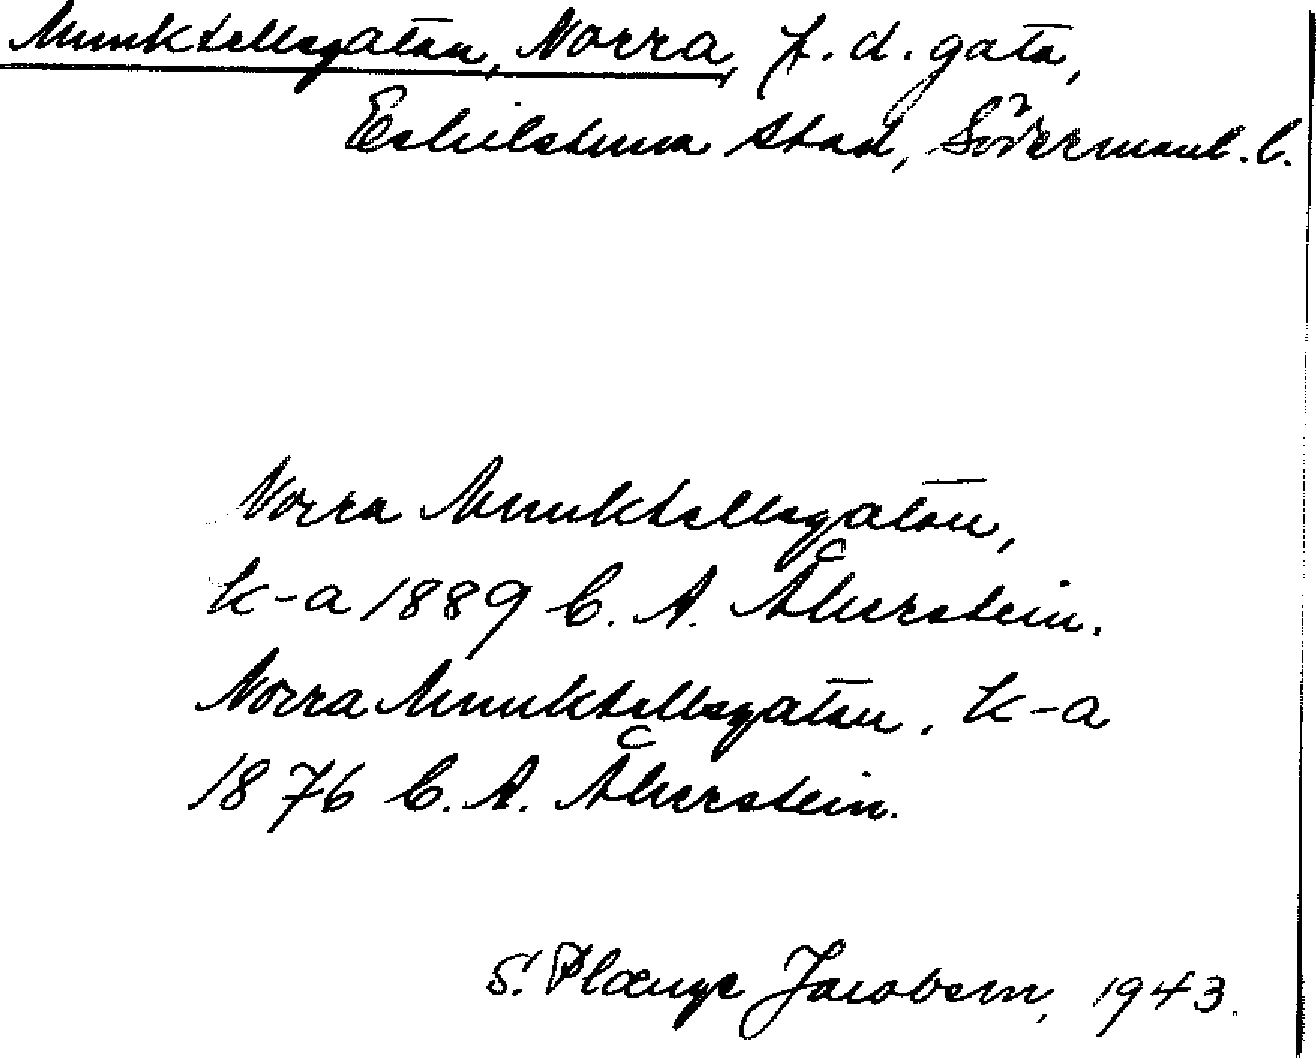 Munktellsgatan, Norra, f.d. gata,
Eskilstuna stad, Södermanl. l.
Norra Munktellsgatan,
k-a 1889 C. A. Åkerstein.
Norra Munktellsgatan. k-a
1876 C. A. Åkerstein.
S. Plænge Jacobson, 1943.